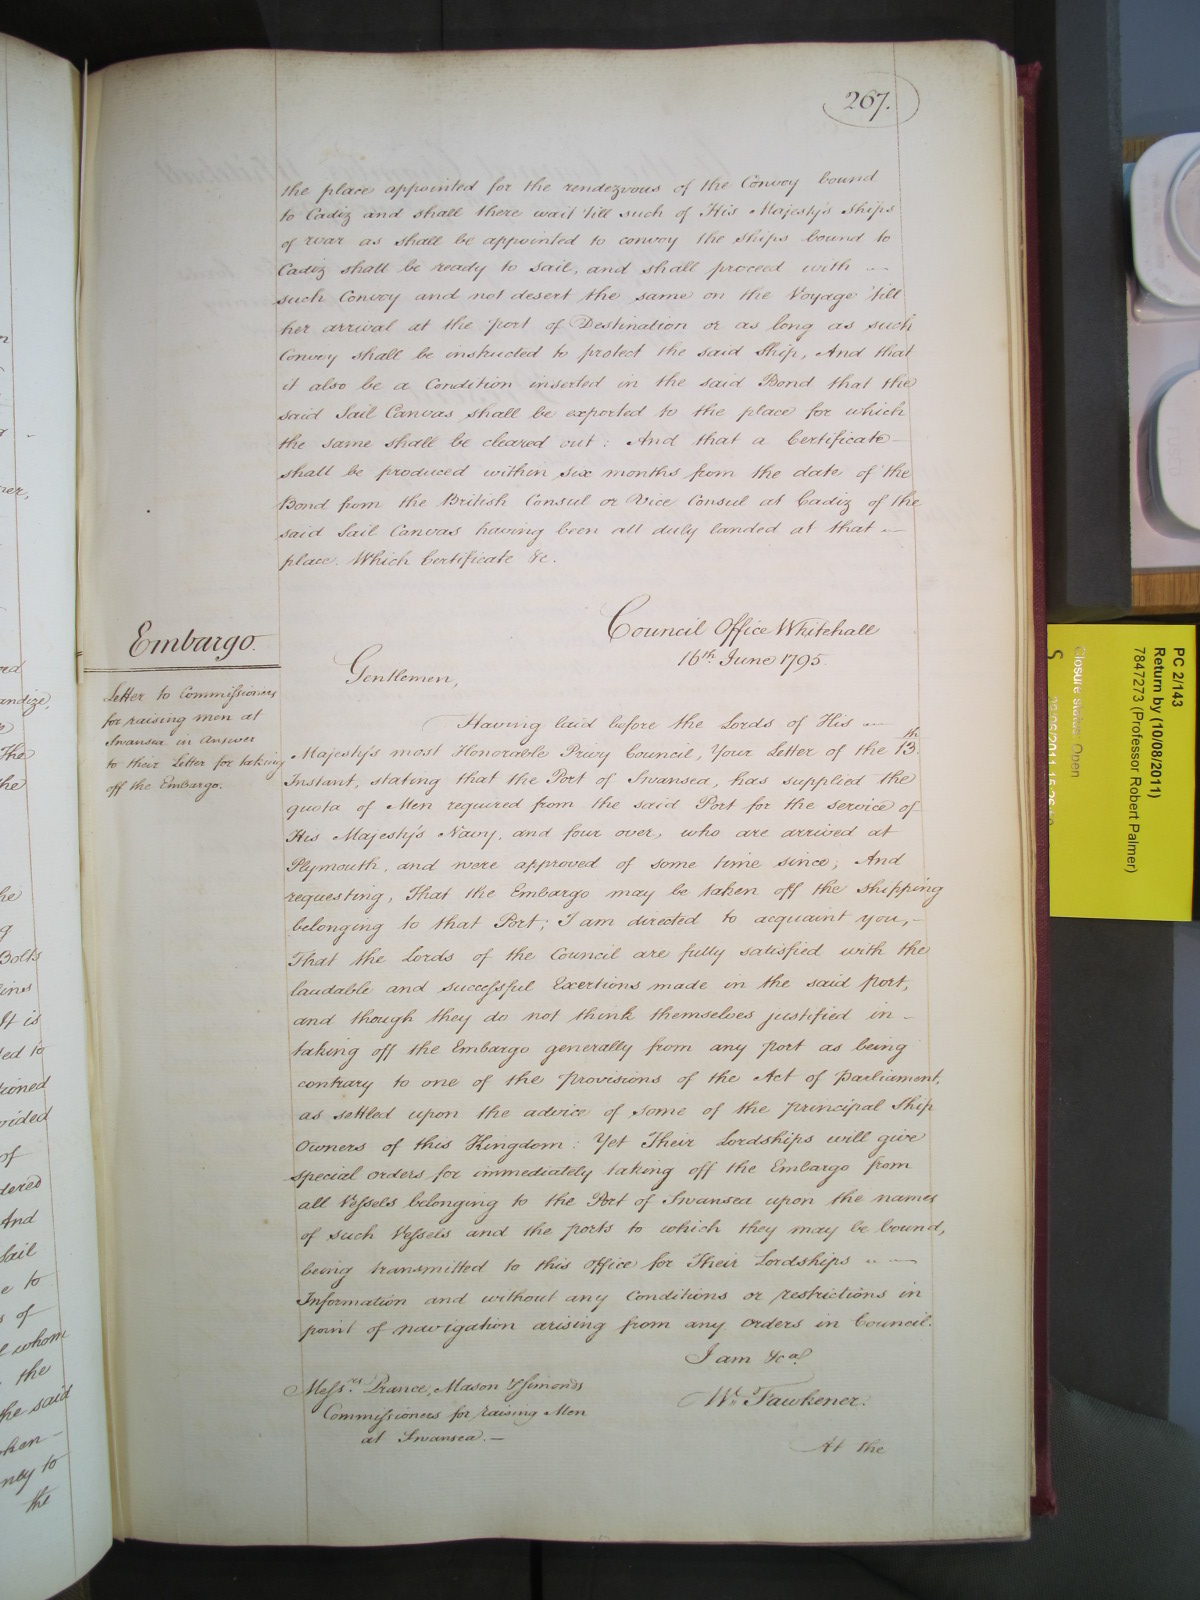 267.
the place appointed for the rendezvous of the Convoy bound
to Cadiz and shall there wait 'till such of His Majesty's Ships
of War as shall be appointed to convoy the Ships bound to
Cadiz shall be ready to sail, and shall proceed with —
such Convoy and not desert the same on the Voyage 'till
her arrival at the port of Destination or as long as such
Convoy shall be instructed to protect the said Ship, And that
it also be a Condition inserted in the said Bond that the
said Sail Canvas shall be exported to the place for which
the same shall be cleared out: And that a Certificate —
shall be produced within six months from the date of the
Bond from the British Consul or Vice Consul at Cadiz of the
said Sail Canvas having been all duly landed at that —
place. Which Certificate &c.
Council Office Whitehall
16th June 1795.
Embargo.
Letter to Commissioners
for raising men at
Swansea in answer
to their Letter for taking
off the Embargo.
Gentlemen,
Having laid before the Lords of His —
Majesty's most Honorable Privy Council, Your Letter of the 13th
Instant, stating that the Port of Swansea, has supplied the
quota of Men required from the said Port for the service of
His Majesty's Navy, and four over, who are arrived at
Plymouth, and were approved of some time since; And
requesting, That the Embargo may be taken off the shipping
belonging to that Port; I am directed to acquaint you, —
That the Lords of the Council are fully satisfied with the
laudable and successful Exertions made in the said port,
and though they do not think themselves justified in —
taking off the Embargo generally from any port as being
contrary to one of the provisions of the Act of Parliament,
as settled upon the advice of some of the principal Ship
Owners of this Kingdom: Yet Their Lordships will give
special orders for immediately taking off the Embargo from
all Vessels belonging to the Port of Swansea upon the names
of such Vessels and the ports to which they may be bound,
being transmitted to this office for Their Lordships —
Information and without any Conditions or restrictions in
point of navigation arising from any orders in Council.
I am &ca
Wm. Fawkener.
Messrs. Prance, Mason & Simonds
Commissioners for raising Men
at Swansea. —
At the
PC 2/143
Return by (10/08/2011)
7847273 (Professor Robert Palmer)
Closure status: Open
S